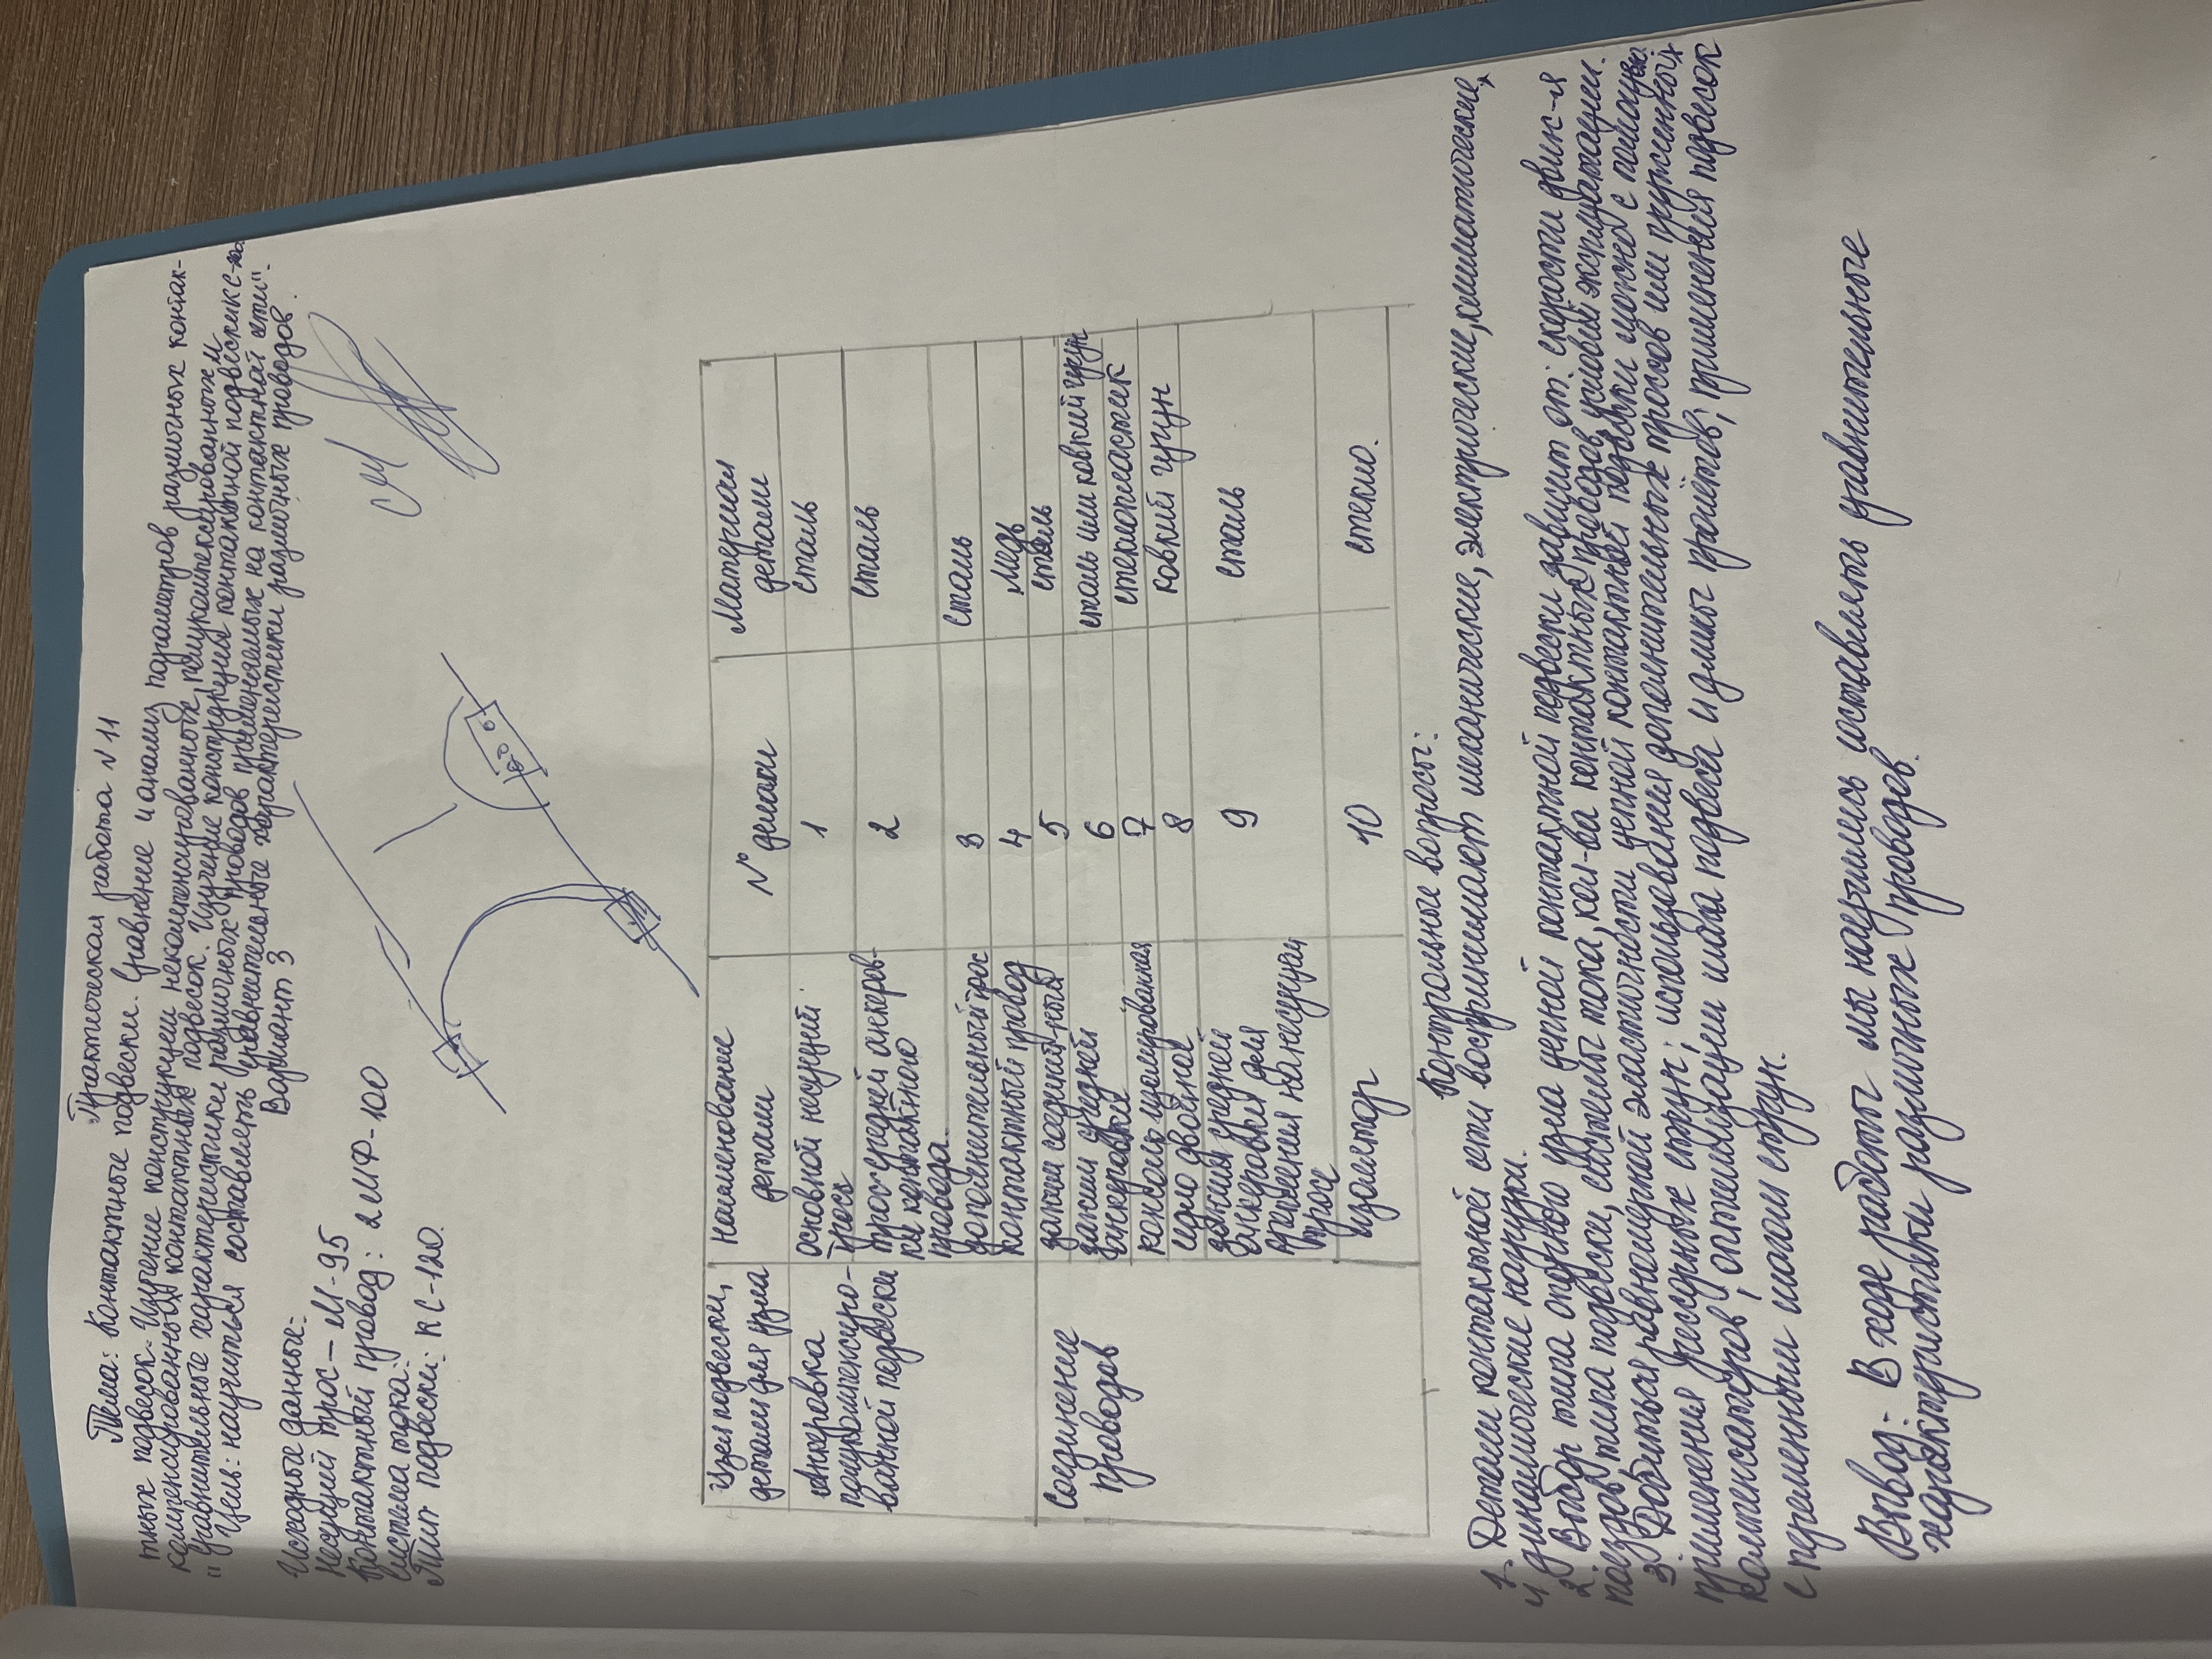 Практическая работа №11
Тема: Контактные подвески. Сравнение и анализ параметров различных контак-
тных подвесок. Изучение конструкции некомпенсированных, полукомпенсированных и
компенсированных контактных подвесок. Изучение конструкции контактной подвески КС-
"Сравнительные характеристики различных проводов применяемых на контактной сети".
Цель: научиться составлять сравнительные характеристики различных проводов.
Вариант 3
Исходные данные:
Несущий трос – М-95
Контактный провод: 2МФ-100
Система тока:
Тип подвески: КС-120.
Узел подвески, детали для узла
Наименование детали
№ детали
Материал детали
Анкеровка полукомпенсиро-
ванной подвески
основной несущий трос
1
сталь
трос средней анкеров-
ки контактного
провода
2
сталь
дополнительный трос
3
сталь
контактный провод
4
медь
Соединение проводов
зажим соединит-ный
5
сталь
зажим средней анкеровки
6
сталь или ковкий чугун
консоль изолированная
7
стеклопластик
седло двойное
8
ковкий чугун
зажим средней
анкеровки для
крепления на несущем
трос
9
сталь
изолятор
10
стекло.
Контрольные вопросы:
1. Детали контактной сети воспринимают механические, электрические, климатические,
и динамические нагрузки.
2. Выбор типа опорного узла цепной контактной подвески зависит от: скорости движ-я
поездов типа подвески, системы тока, кол-ва контактных проводов, условий эксплуатации.
3. Добиться равномерной эластичности цепной контактной подвески можно с помощью
применения рессорных струн; использования дополнительных тросов или пружинных
компенсаторов; оптимизации шага подвеса и длины пролётов; применения подвесок
с переменным шагом струн.
Вывод: В ходе работы мы научились составлять сравнительные
характеристики различных проводов.